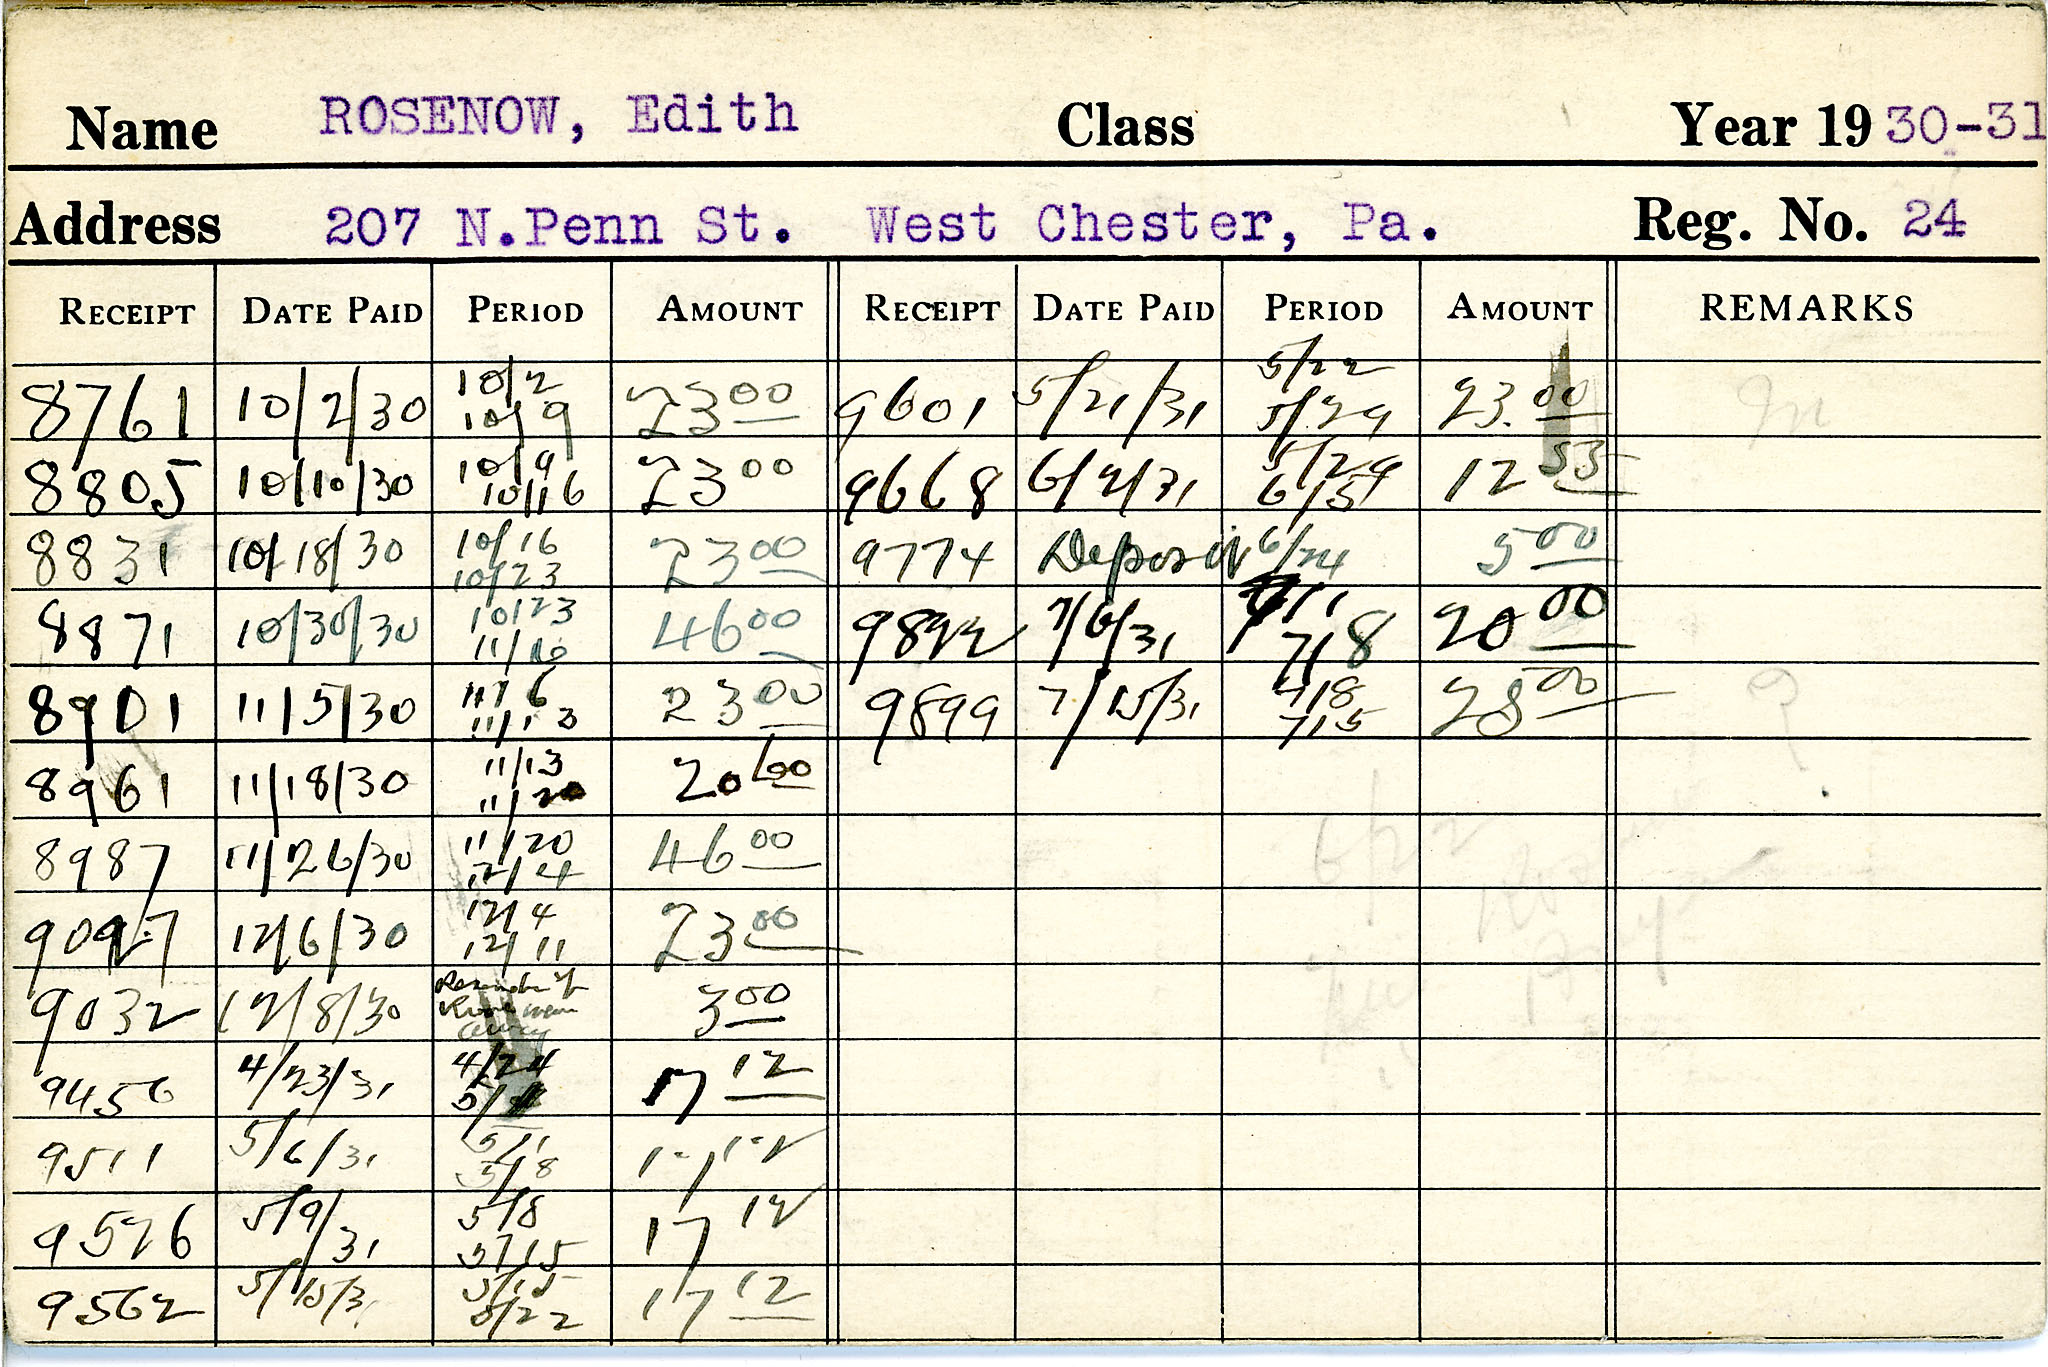 Name ROSENOW, Edith Class Year 19 30-31
Address 207 N.Penn St. West Chester, Pa. Reg. No. 24
RECEIPT DATE PAID PERIOD AMOUNT RECEIPT DATE PAID PERIOD AMOUNT REMARKS
8761 10/2/30 10/2 10/9 23 00 9601 5/21/31 5/22 5/29 23.00
8805 10/10/30 10/9 10/16 23 00 9668 6/2/31 5/29 6/5 12 53
8831 10/18/30 10/16 10/23 23 00 9774 Deposit 6/24 5 00
8871 10/30/30 10/23 11/6 46 00 9892 7/6/31 7/1 7/8 20 00
8901 11/5/30 11/6 11/13 23 00 9899 7/15/31 7/8 7/15 28 00
8961 11/18/30 11/13 11/20 20 60
8987 11/26/30 11/20 12/4 46 00
9027 12/6/30 12/4 12/11 23 00
9032 12/8/30 Remainder of Room when away 3 00
9456 4/23/31 4/24 5/1 17 12
9511 5/6/31 5/1 5/8 17 12
9526 5/9/31 5/8 5/15 17 12
9562 5/15/31 5/15 5/22 17 12